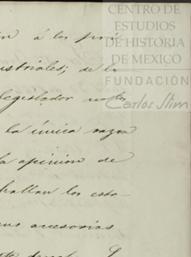 CENTRO DE
ESTUDIOS
DE HISTORIA
DE MEXICO
FUNDACIÓN
Carlos Slim
á los
ustriales; de la
legislador
la única razon
la opinion de
hallan los esta-
sus accesorias